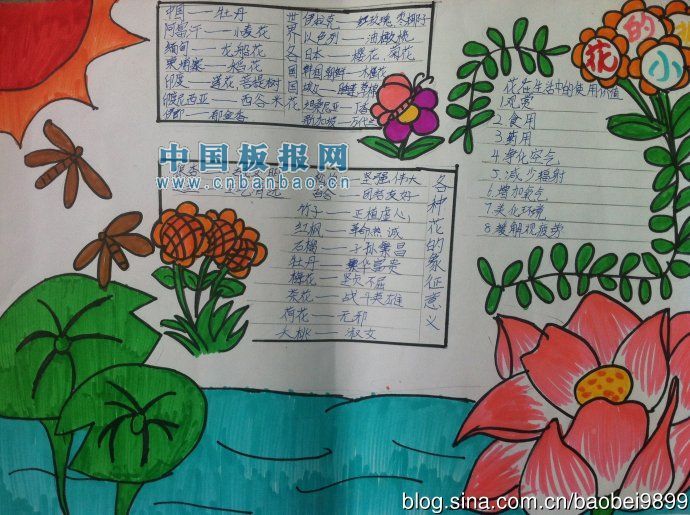 中国——牡丹
阿富汗——小麦花
缅甸——龙船花
柬埔寨——水稻花
印度——莲花、菩提树
伊朗——郁金香
世界各国国花
以色列——油橄榄
日本——樱花、菊花
的
花 小
花在生活中的使用价值
1.观赏
2.食用
3.药用
4.净化空气
5.减少辐射
6.增加氧气
7.美化环境
8.缓解视疲劳
中国板报网
www.cnbanbao.cn
坚强伟大
团结友好
竹子——正直虚心
红枫——革命热诚
石榴——子孙繁昌
牡丹——繁华富贵
梅花——坚贞不屈
茶花——战斗英雄
荷花——无邪
大桃——淑女
各种花的象征意义
blog.sina.com.cn/baobei9899